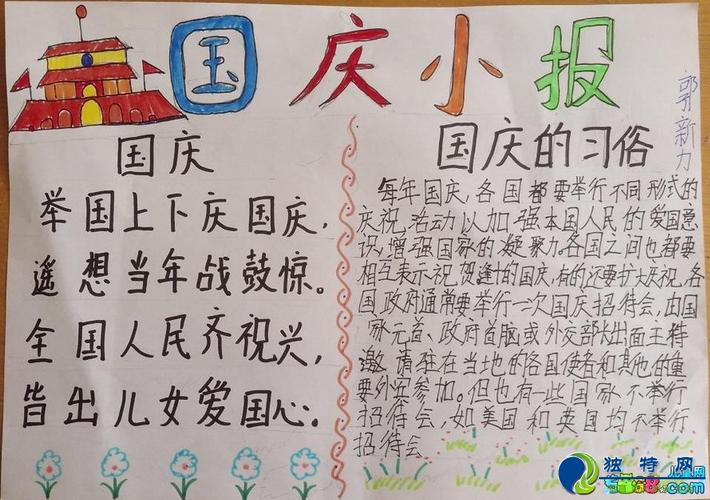 国庆小报
郭新力
国庆
举国上下庆国庆，
遥想当年战鼓惊。
全国人民齐祝兴，
皆出儿女爱国心。
国庆的习俗
每年国庆，各国都要举行不同形式的
庆祝活动以加强本国人民的爱国意
识，增强国家的凝聚力。各国之间也都要
相互表示祝贺。逢十的国庆，有的还要扩大庆祝。各
国政府通常要举行一次国庆招待会，由国
家元首、政府首脑或外交部大出面主持
邀请驻在当地的各国使者和其他的重
要外宾参加。但也有一些国家不举行
招待会，如美国和英国均不举行
招待会
独特网
儿童网